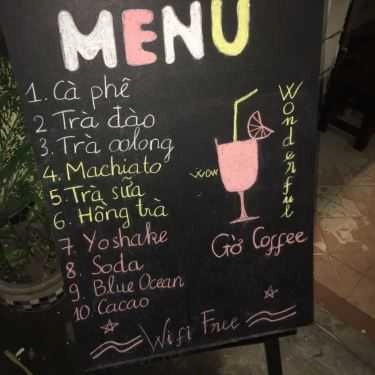 MENU
1. Cà phê
2 Trà đào
3. Trà oolong
4. Machiato
5. Trà sữa
6. Hồng trà
7 Yoshake
8. Soda
9. Blue Ocean
10. Cacao
WOW
Wonderful
Gờ Coffee
Wifi Free